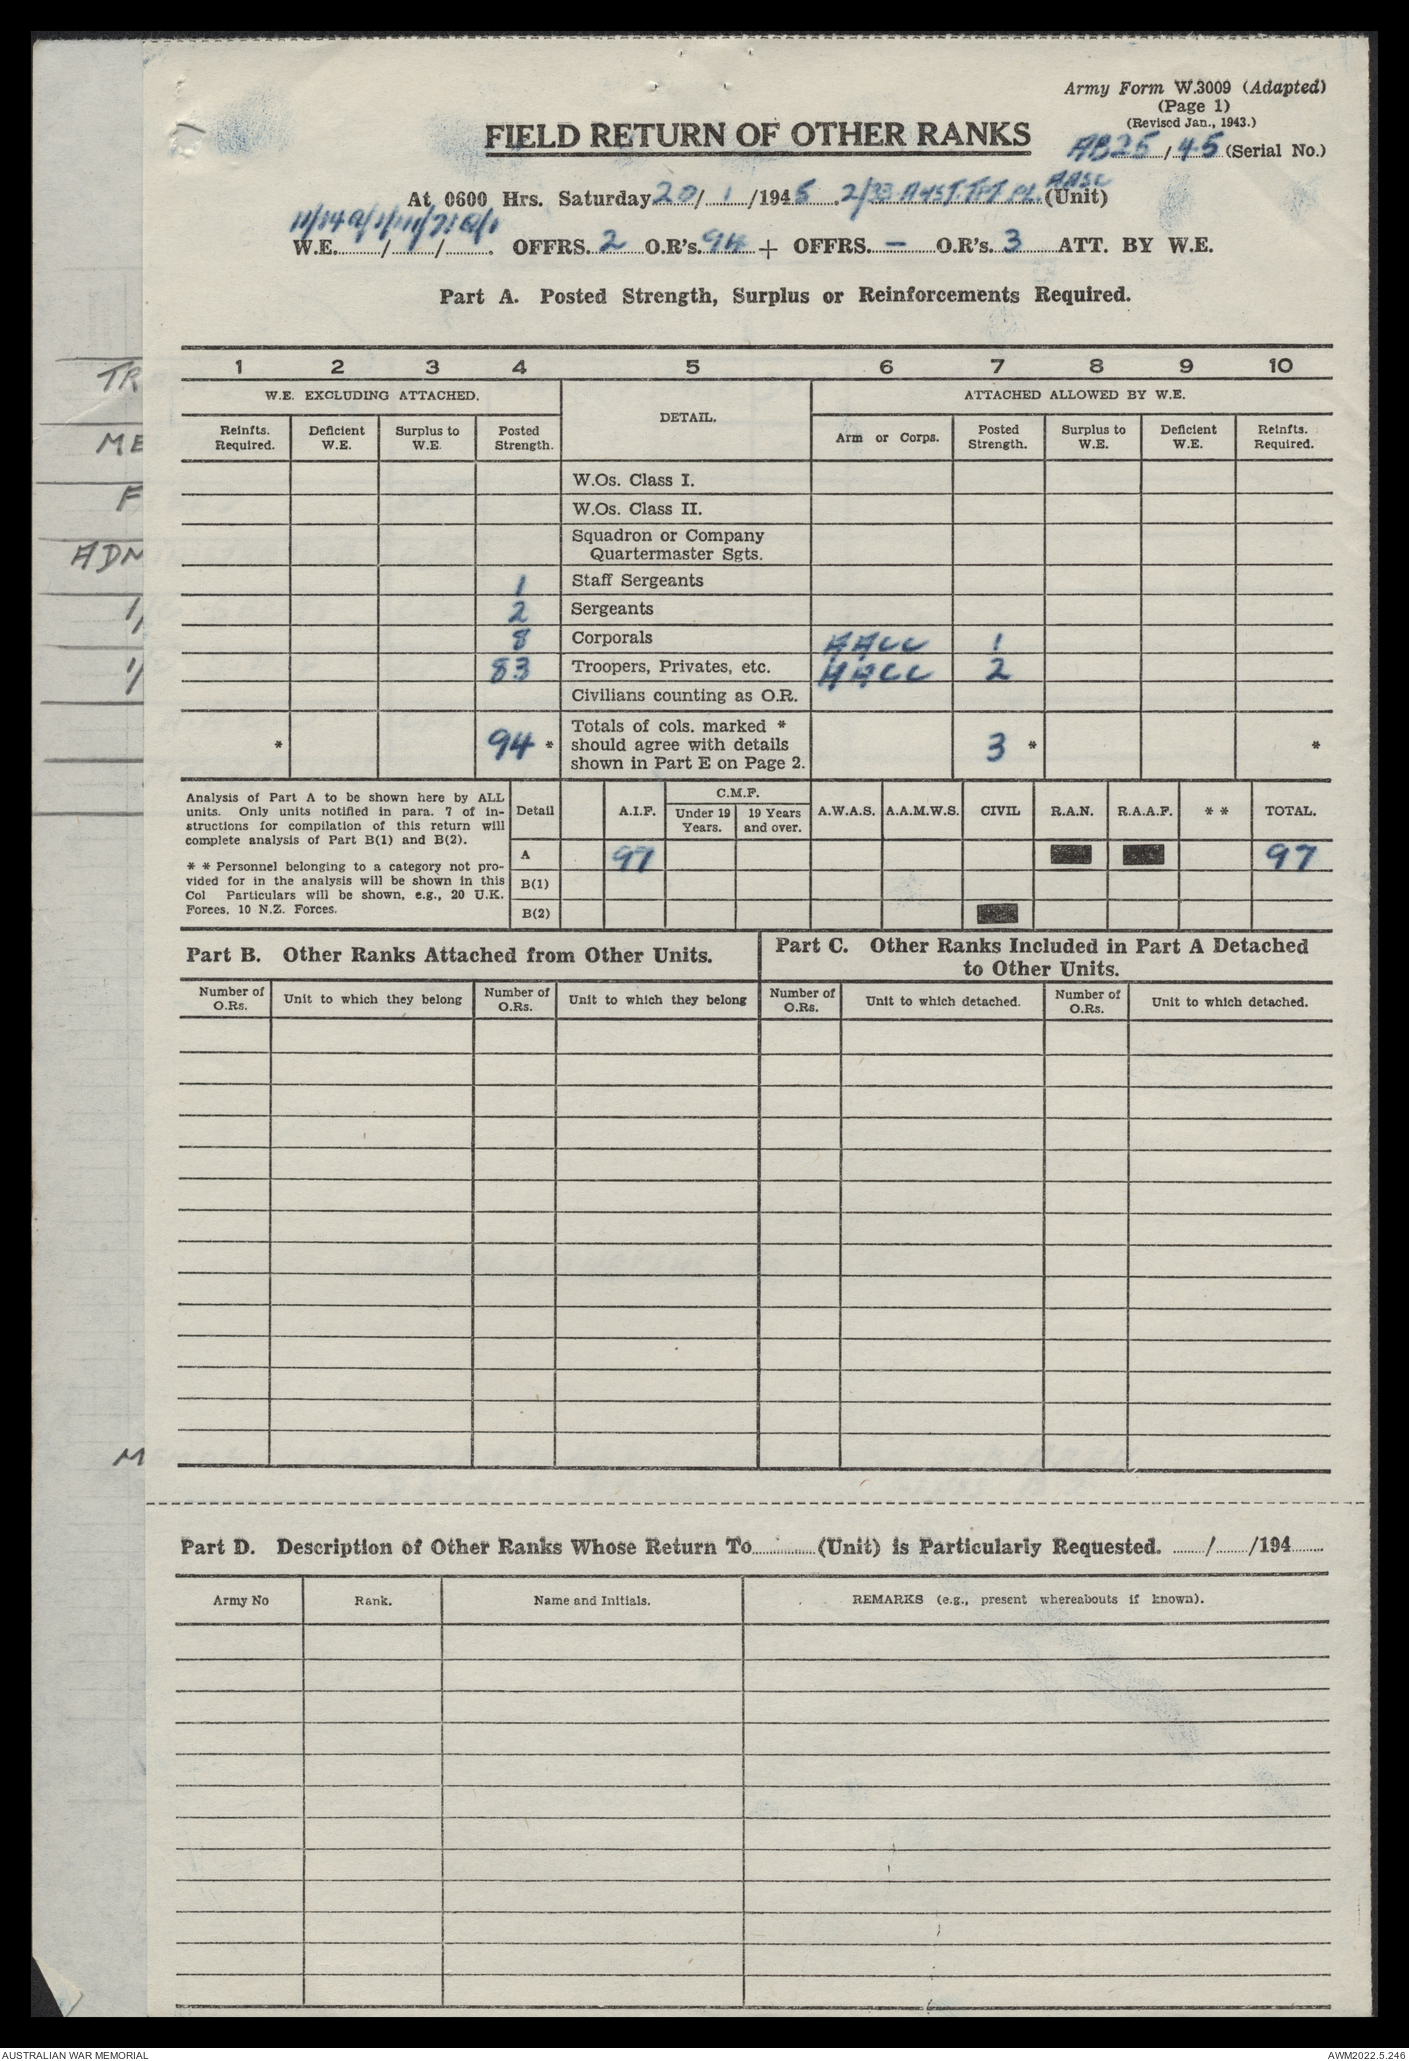 Army Form W.3009 (Adapted)
(Page 1)
(Revised Jan., 1943.)
FIELD RETURN OF OTHER RANKS
AB25/45 (Serial No.)
At 0600 Hrs. Saturday 20/1/1945. 2/33 Aust. Tpt. Pl. AASC (Unit)
W.E. OFFRS. 2 O.R's. 94 + OFFRS. — O.R's. 3 ATT. BY W.E.
Part A. Posted Strength, Surplus or Reinforcements Required.
1 2 3 4 5 6 7 8 9 10
W.E. EXCLUDING ATTACHED. DETAIL. ATTACHED ALLOWED BY W.E.
Reinfts. Required. Deficient W.E. Surplus to W.E. Posted Strength. Arm or Corps. Posted Strength. Surplus to W.E. Deficient W.E. Reinfts. Required.
W.Os. Class I.
W.Os. Class II.
Squadron or Company
Quartermaster Sgts.
1 Staff Sergeants
2 Sergeants
8 Corporals AACC 1
83 Troopers, Privates, etc. AACC 2
Civilians counting as O.R.
* 94 * Totals of cols. marked * should agree with details shown in Part E on Page 2. 3 * *
Analysis of Part A to be shown here by ALL
units. Only units notified in para. 7 of in-
structions for compilation of this return will
complete analysis of Part B(1) and B(2).
* * Personnel belonging to a category not pro-
vided for in the analysis will be shown in this
Col Particulars will be shown, e.g., 20 U.K.
Forces, 10 N.Z. Forces.
Detail A.I.F. C.M.F. Under 19 Years. 19 Years and over. A.W.A.S. A.A.M.W.S. CIVIL R.A.N. R.A.A.F. * * TOTAL.
A 97 97
B(1)
B(2)
Part B. Other Ranks Attached from Other Units.
Part C. Other Ranks Included in Part A Detached
to Other Units.
Number of O.Rs. Unit to which they belong Number of O.Rs. Unit to which they belong Number of O.Rs. Unit to which detached. Number of O.Rs. Unit to which detached.
Part D. Description of Other Ranks Whose Return To (Unit) is Particularly Requested. / /194
Army No Rank. Name and Initials. REMARKS (e.g., present whereabouts if known).
TR
ME
F
ADM
1/
1/
M
AUSTRALIAN WAR MEMORIAL
AWM2022.5.246